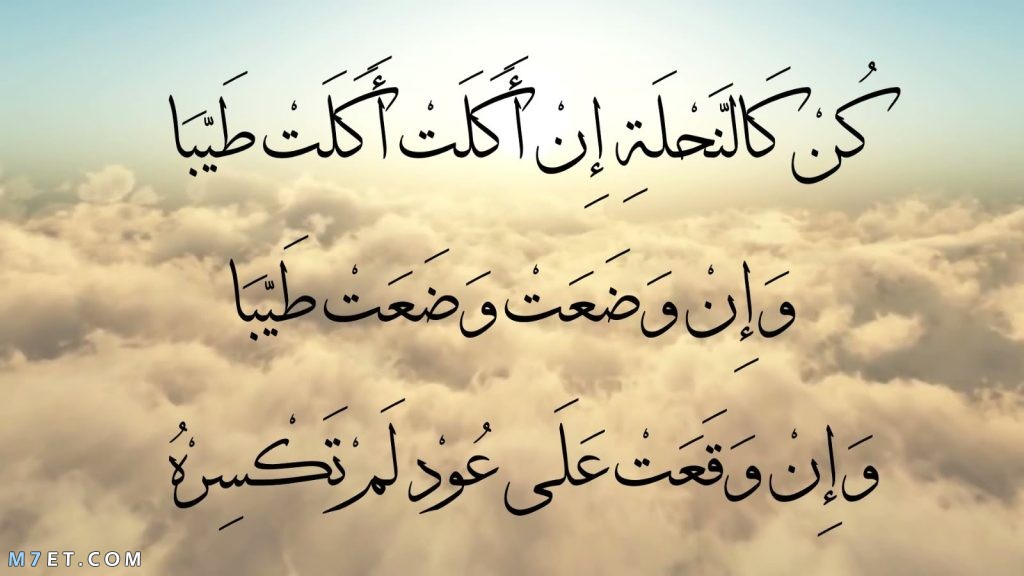 كُنْ كَالنَّحْلَةِ إِنْ أَكَلَتْ أَكَلَتْ طَيِّبَا
وَإِنْ وَضَعَتْ وَضَعَتْ طَيِّبَا
وَإِنْ وَقَعَتْ عَلَى عُوْدٍ لَمْ تَكْسِرْهُ
M7ET.COM